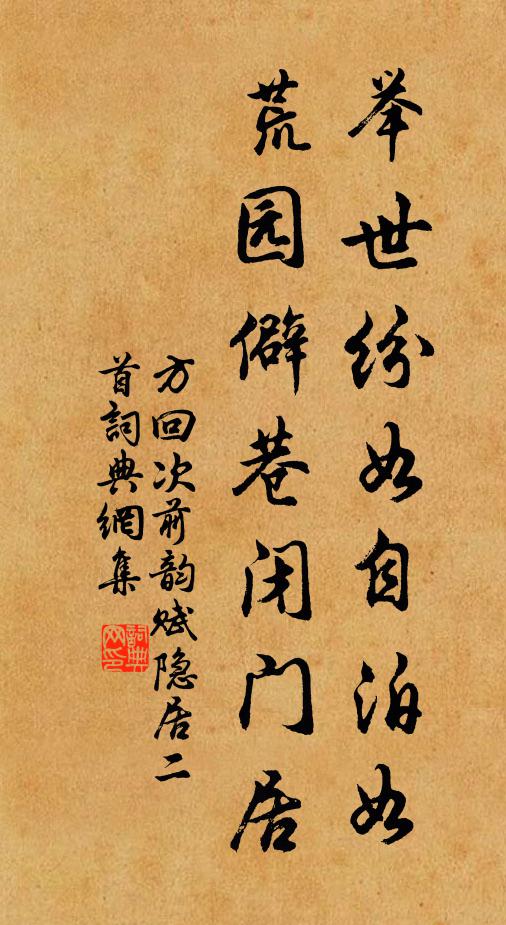 举世纷如自泊如
荒园僻巷闭门居
方回次前韵赋隐居二
首词典網集
詞典
网印